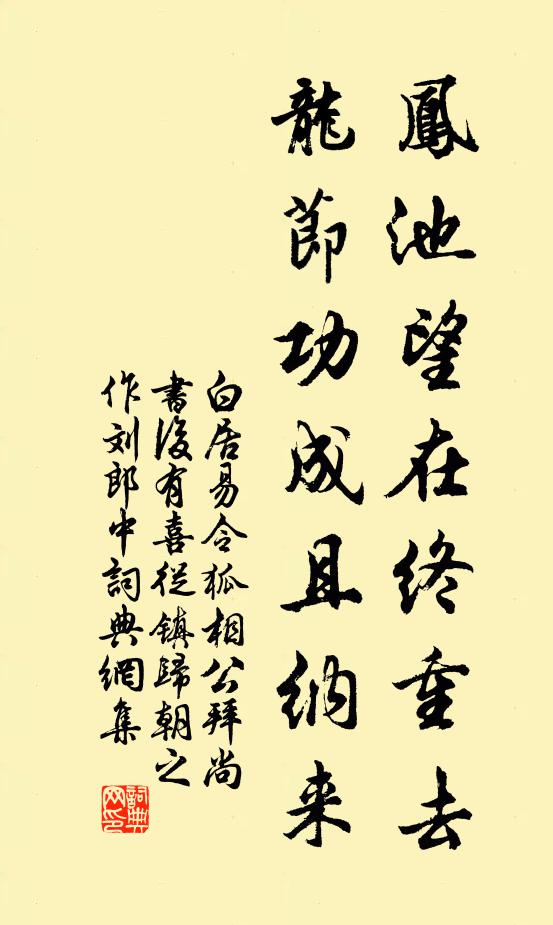 鳳池望在終重去
龍節功成且納来
白居易令狐相公拜尚
書後有喜從鎮歸朝之
作刘郎中詞典網集
詞典网印